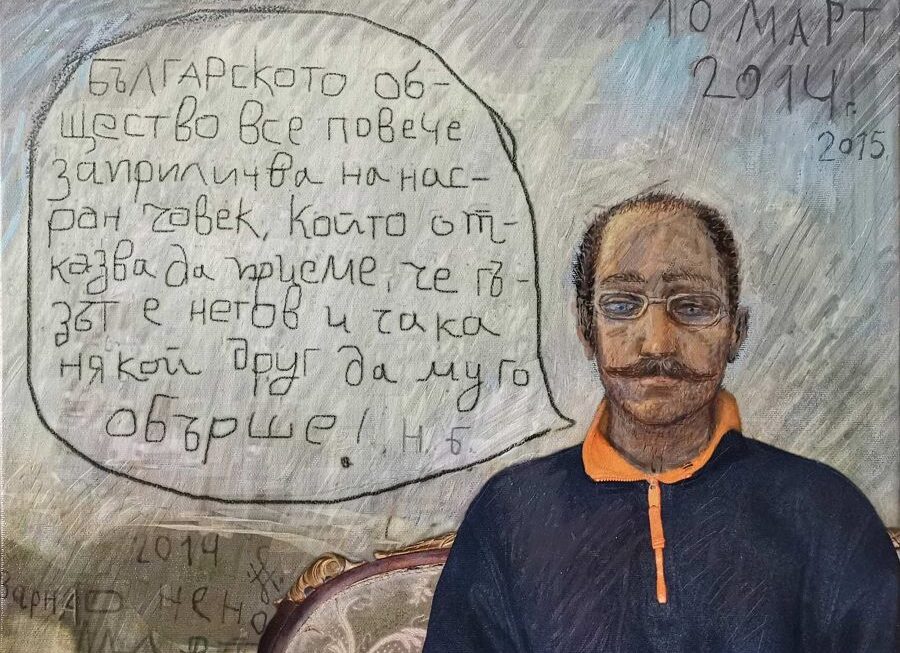 10 МАРТ
2014г.
2015
БЪЛГАРСКОТО об-
щество все повече
заприличва на нас-
ран човек, който от-
казва да приеме, че гъ-
зът е негов и чака
някой друг да му го
обърше! Н. Б.
2014
МАРТ